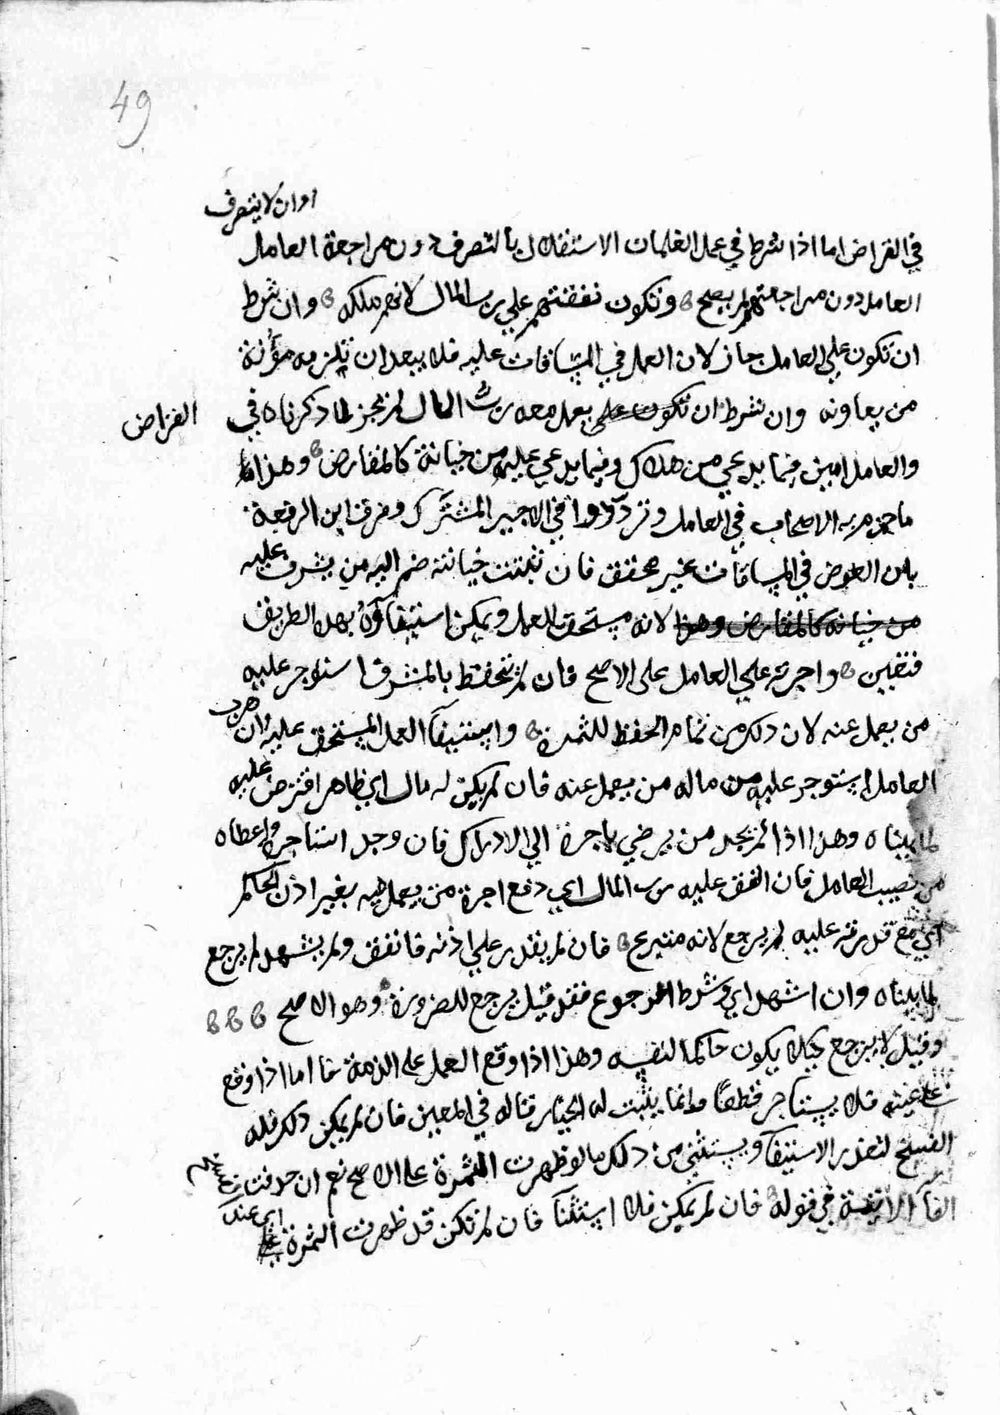 49
او ان لا يتصرف
في القراض اما اذا شرط في عمل الغلمات الاستقلال بالتصرف دون مراجعة العامل
العامل دون مراجعتهم لم يصح وتكون نفقتهم علي رب المال لانهم ملكه وان شرط
ان تكون علي العامل جاز لان العمل في المساقات عليه فلا يبعد ان تلزمه مؤنة
من يعاونه وان شرط ان يعمل معه رب المال لم يجز لما ذكرناه في القراض
والعامل امين فيما يدعي من هلاك وفيما يدعي عليه من خيانة كالمقارض وهذا
ما جزم به الاصحاب في العامل وترددوا في الاجير المشترك وفرق ابن الرفعة
بان العوض في المساقات غير محقق فان ثبتت خيانته ضم اليه من يشرف عليه
من خيانة كالمقارض وهذا لانه مستحق للعمل ويمكن استيفاؤه بهذا الطريق
فتعين واجرته علي العامل علي الاصح فان لم يتحفظ بالمشرف استوجر عليه
من يعمل عنه لان ذلك من تمام الحفظ للثمرة واستيفا العمل المستحق عليه وان هرب
العامل استوجر عليه من ماله من يعمل عنه فان لم يكن له مال اي ظاهر اقترض عليه
لما بيناه وهذا اذا لم يجد من يرضي باجرة الي الادراك فان وجد استاجره واعطاه
من نصيب العامل فان انفق عليه رب المال اي دفع اجرة من يعمل فيه بغير اذن الحاكم
اي مع قدرته عليه لم يرجع لانه متبرع فان لم يقدر علي اذنه فانفق ولم يشهد لم يرجع
لما بيناه وان اشهد اي وشرط الرجوع فقد قيل يرجع للضرورة وهو الاصح
وقيل لا يرجع كيلا يكون حاكما لنفسه وهذا اذا وقع العمل علي الذمة اما اذا وقع
علي عينه فلا يستاجر قطعا وانما يثبت له الخيار قتاله في المعين فان لم يكن ذلك فله
الفسخ لتعذر الاستيفا ويستثني من ذلك ما لو ظهرت الثمرة علي الاصح نعم ان حذفنا
الفا الاتية في قوله فان لم يمكن فلا استثنا فان لم تكن قد ظهرت الثمرة اي عند